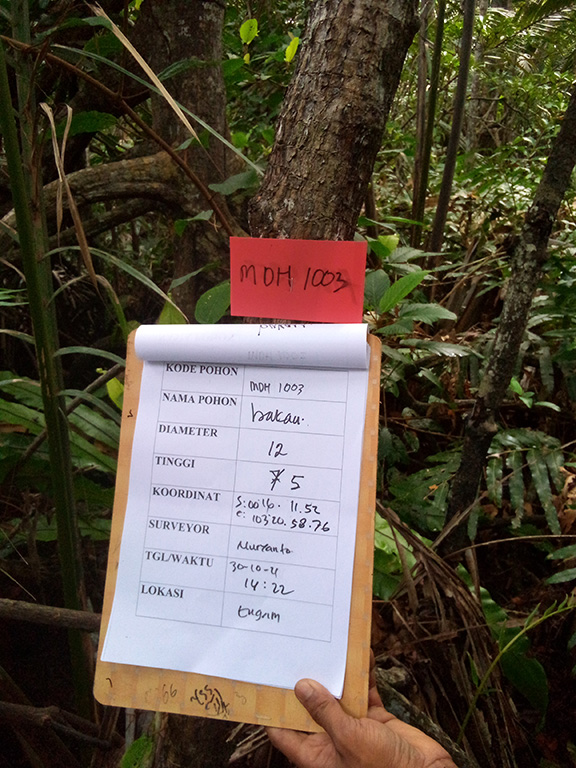 MDH 1003
KODE POHON MDH 1003
NAMA POHON bakau.
DIAMETER 12
TINGGI 5
KOORDINAT S: 00 16. 11.52
E: 103 20. 58.76
SURVEYOR Nurranto
TGL/WAKTU 30-10-21
14:22
LOKASI